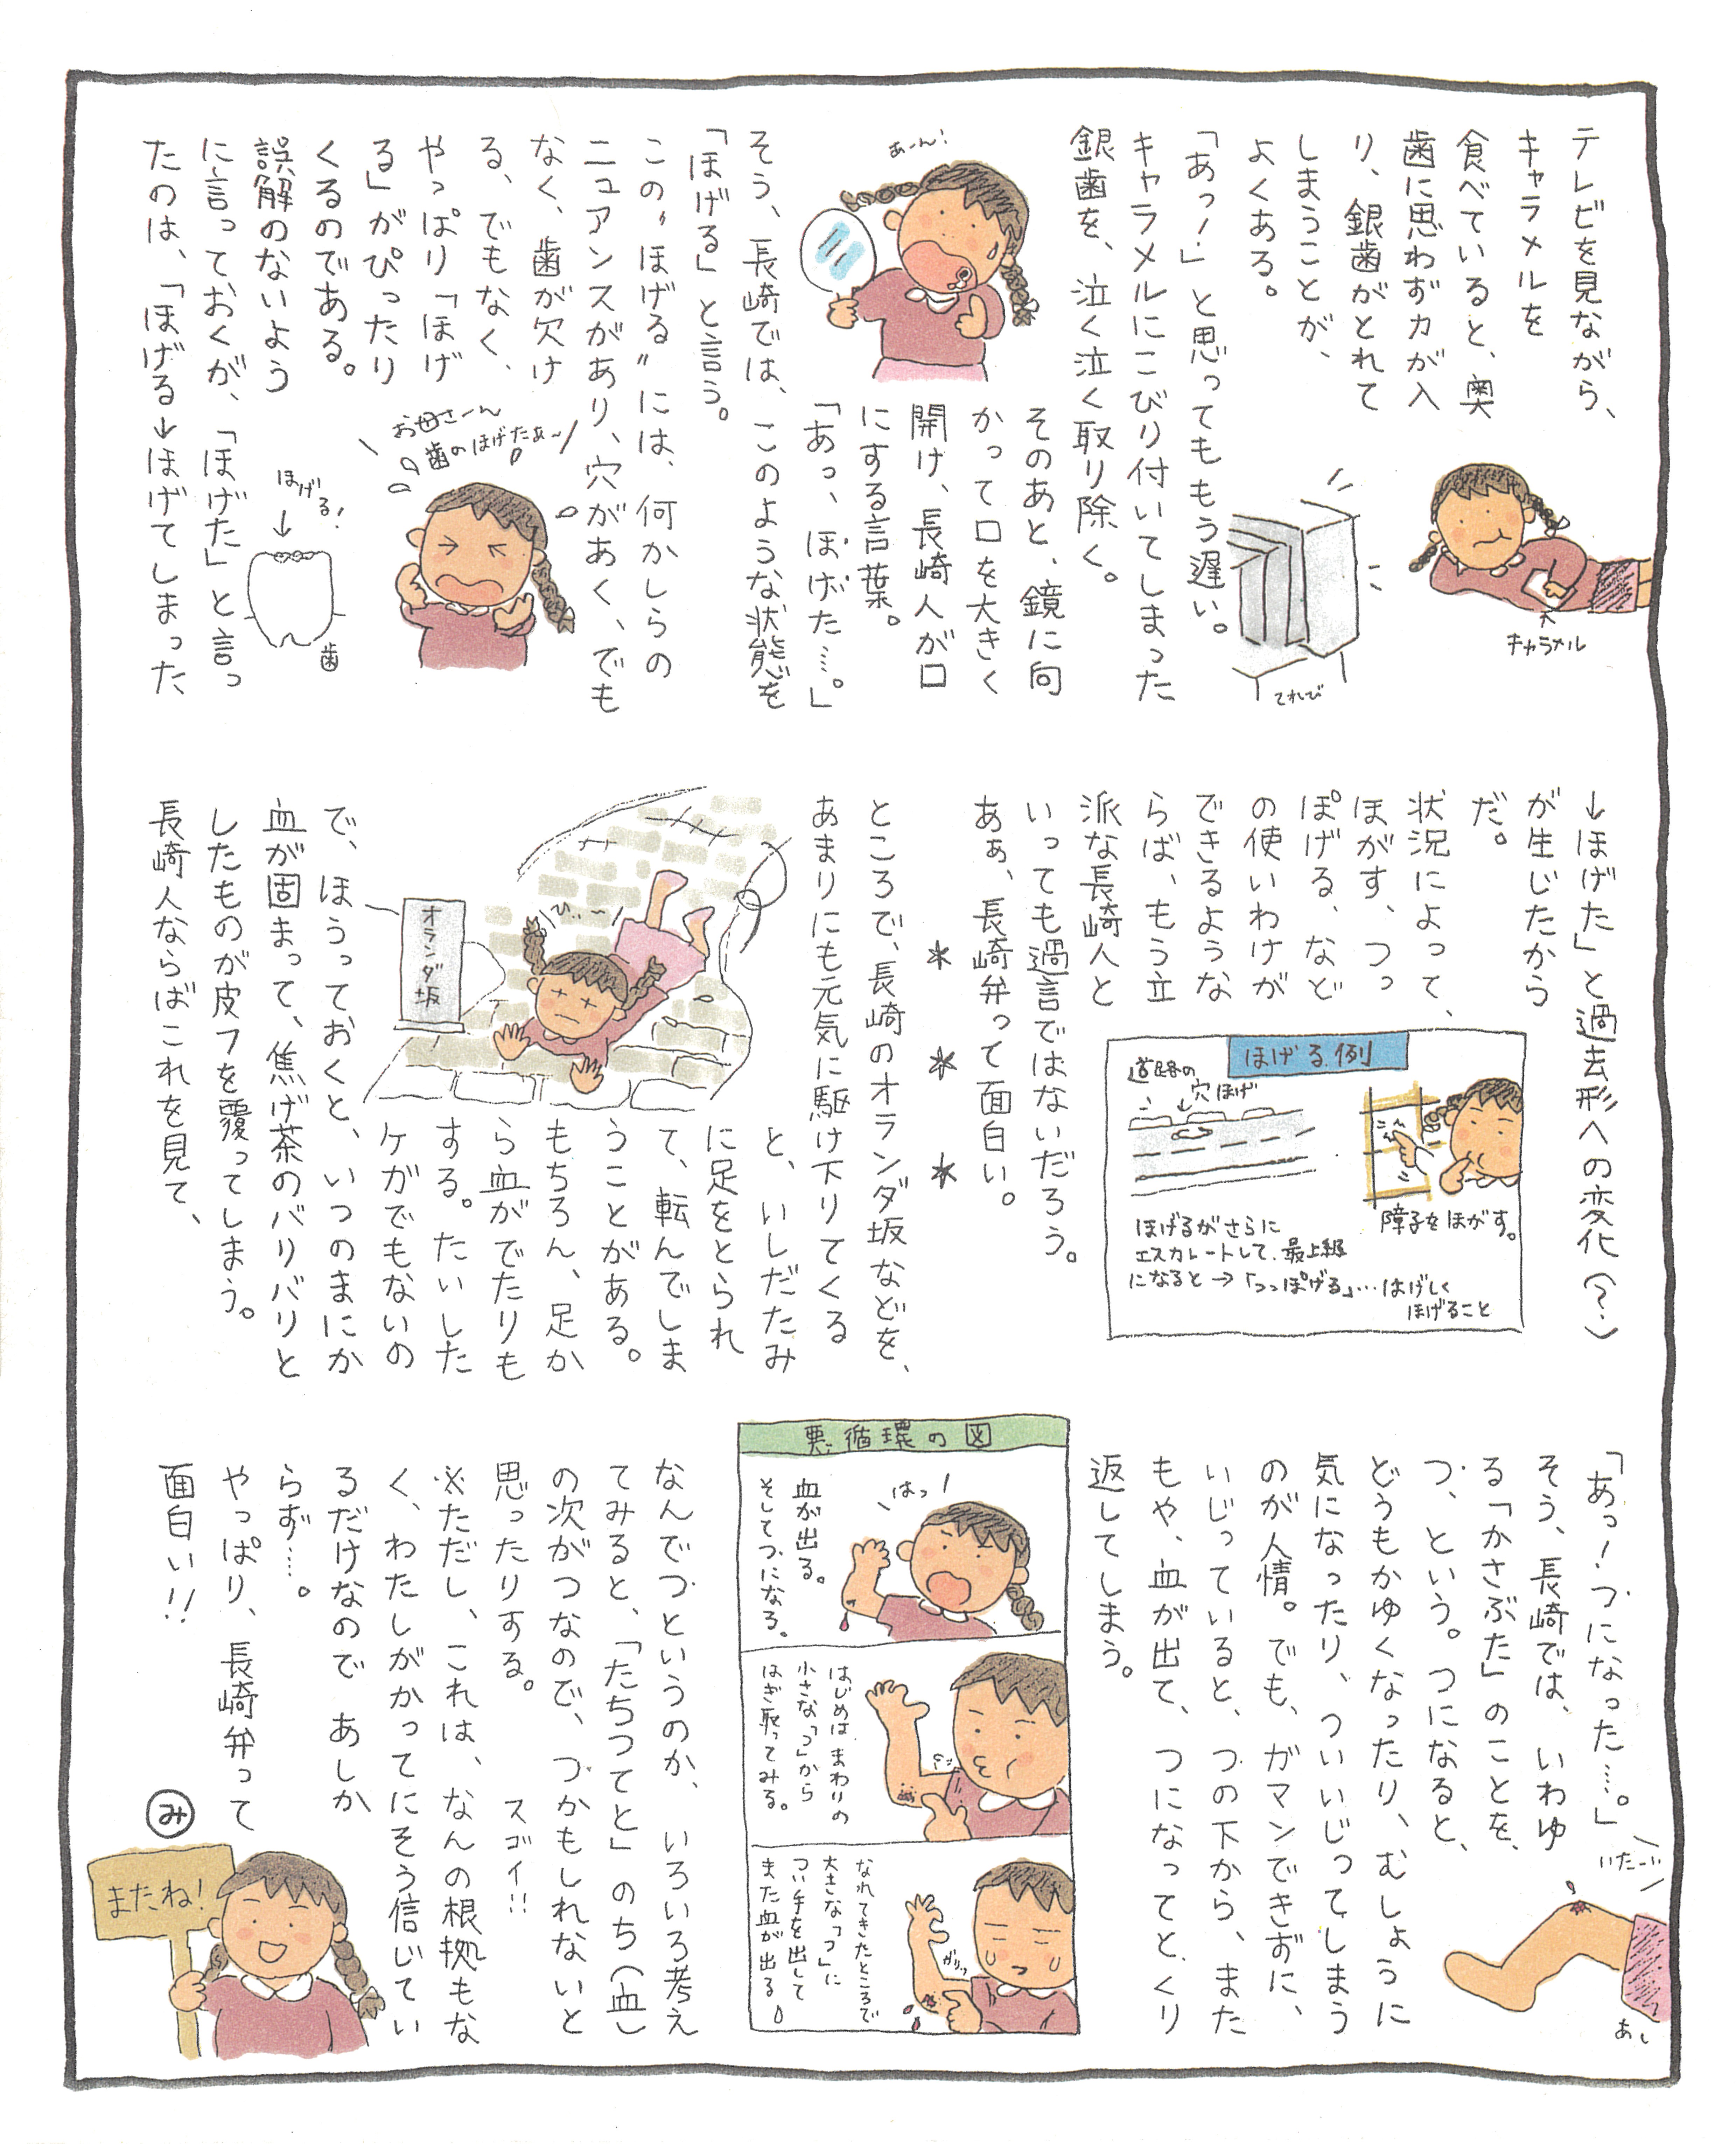 テレビを見ながら、
キャラメルを
食べていると、奥
歯に思わず力が入
り、銀歯がとれて
しまうことが、
よくある。
「あっ!」と思ってももう遅い。
キャラメルにこびり付いてしまった
銀歯を、泣く泣く取り除く。
キャラメル
てれび
あーん!
そのあと、鏡に向
かって口を大きく
開け、長崎人が口
にする言葉。
「あっ、ほげた…。」
そう、長崎では、このような状態を
「ほげる」と言う。
この〝ほげる〟には、何かしらの
ニュアンスがあり、穴があく、でも
なく、歯が欠け
る、でもなく、
やっぱり「ほげ
る」がぴったり
くるのである。
誤解のないよう
に言っておくが、「ほげた」と言っ
たのは、「ほげる→ほげてしまった
お母さーん
歯のほげたぁ~
ほげる!
歯
→ほげた」と過去形への変化(?)
が生じたから
だ。
状況によって、
ほがす、つっ
ぽげる、など
の使いわけが
できるような
らば、もう立
派な長崎人と
いっても過言ではないだろう。
あぁ、長崎弁って面白い。
ほげる例
道路の
穴ほげ
障子をほがす。
ほげるがさらに
エスカレートして、最上級
になると→「つっぽげる」…はげしく
ほげること
* * *
ところで、長崎のオランダ坂などを、
あまりにも元気に駆け下りてくる
と、いしだたみ
に足をとられ
て、転んでしま
うことがある。
もちろん、足か
ら血がでたりも
する。たいした
ケガでもないの
で、ほうっておくと、いつのまにか
血が固まって、焦げ茶のバリバリと
したものが皮フを覆ってしまう。
長崎人ならばこれを見て、
ひぃ~
オランダ坂
「あっ!つになった…。」
そう、長崎では、いわゆ
る「かさぶた」のことを、
つ、という。つになると、
どうもかゆくなったり、むしょうに
気になったり、ついいじってしまう
のが人情。でも、ガマンできずに、
いじっていると、つの下から、また
もや、血が出て、つになってとくり
返してしまう。
いたーい
あし
悪循環の図
はっ!
血が出る。
そしてつになる。
はじめはまわりの
小さな「つ」から
はぎ取ってみる。
なれてきたところで
大きな「つ」に
つい手を出して
また血が出る
ガリッ
なんでつというのか、いろいろ考え
てみると、「たちつてと」のち(血)
の次がつなので、つかもしれないと
思ったりする。 スゴイ!!
※ただし、これは、なんの根拠もな
く、わたしがかってにそう信じてい
るだけなので あしか
らず…。
やっぱり、長崎弁って
面白い!!
み
またね!